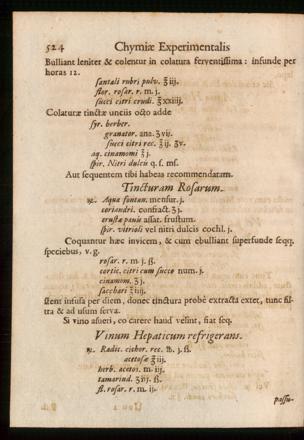 524 Chymiæ Experimentalis
Bulliant leniter & colentur in colatura ferventissima : infunde per
horas 12.
santali rubri pulv. ℥iij.
flor. rosar. r. m. j.
succi citri crudi. ℥xxiiij.
Colaturæ tinctæ unciis octo adde
syr. berber.
granator. ana. ℥vij.
succi citri rec. ℥ij. ʒv.
aq. cinamomi ℥j.
spir. Nitri dulcis q. s. ms.
Aut sequentem tibi habeas recommendatam.
Tincturam Rosarum.
℞. Aquæ fontan. mensur. j.
coriandri. contract. ʒj.
crustæ panis assat. frustum.
spir. vitrioli vel nitri dulcis cochl. j.
Coquantur hæc invicem, & cum ebulliant superfunde seqq.
speciebus, v. g.
rosar. r. m. j. ß.
cortic. citri cum succo num. j.
cinamom. ʒj.
sacchari ℥iij.
stent infusa per diem, donec tinctura probè extracta extet, tunc fil-
tra & ad usum serva.
Si vino assueri, eo carere haud velint, fiat seq.
Vinum Hepaticum refrigerans.
℞. Radic. cichor. rec. ℔. j. ß.
acetosæ ℥iij.
herb. acetos. m. iij.
tamarind. ℥iij. ß.
fl. rosar. r. m. ij.
passu-